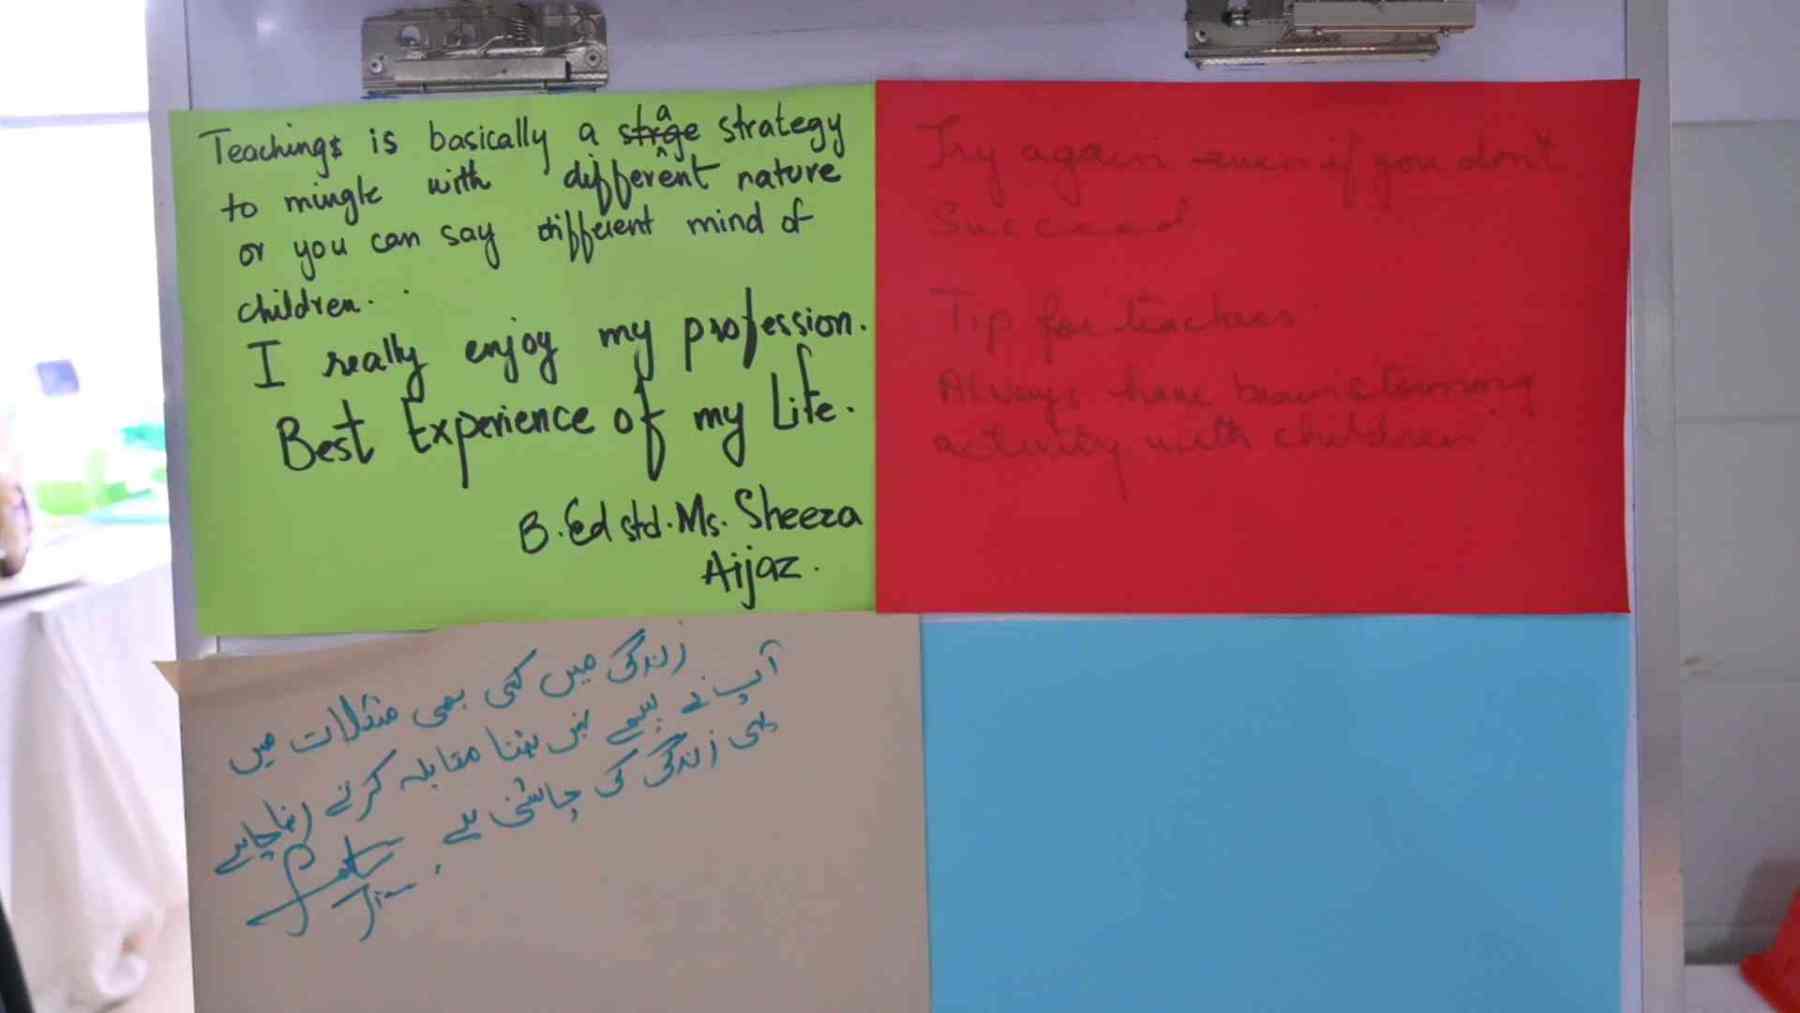 Teachings is basically a strategy
to mingle with different nature
or you can say different mind of
children.
I really enjoy my profession.
Best Experience of my Life.
B.Ed std. Ms. Sheeza
Aijaz.
Try again even if you don't
Succeed
Tip for teachers
Always have brainstorming
activity with children
زندگی میں کسی بھی مشکلات میں
آپ نے پیچھے نہیں ہٹنا مقابلہ کرتے رہنا چاہیے
یہی زندگی کی چاشنی ہے